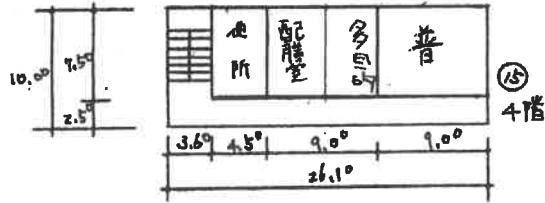 10.00
7.50
2.50
便所
配膳室
多目的
普
⑮
4階
3.60
4.50
9.00
9.00
26.10